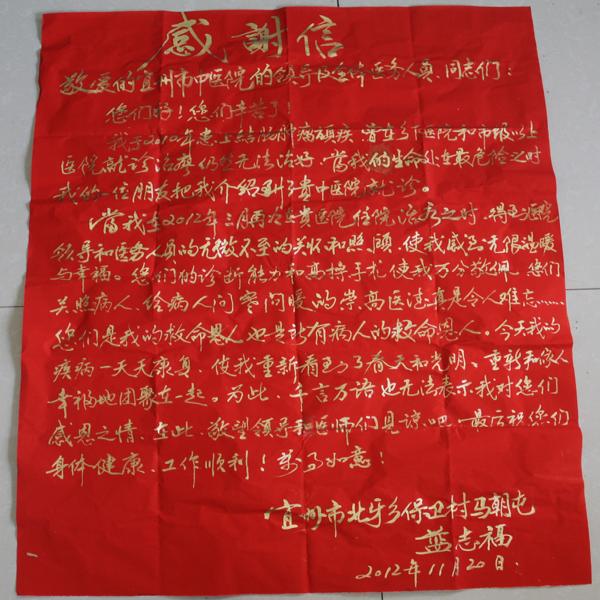 感謝信
敬爱的宜州市中医院的领导及全体医务人员、同志们：
您们好！您们辛苦了！
我于2012年患上结肠肿疡顽疾，曾在乡下医院和市级以上
医院就诊治疗仍然无法治好，当我的生命处在最危险之时
我的一位朋友把我介绍到了贵中医院就诊。
当我在2012年三月两次在贵医院住院治疗之时，得到医院
领导和医务人员的无微不至的关怀和照顾，使我感到无限温暖
与幸福。您们的诊断能力和高操手札使我万分敬佩。您们
关照病人、给病人问寒问暖的崇高医德真是令人难忘……
您们是我的救命恩人也是所有病人的救命恩人。今天我的
疾病一天天康复，使我重新看到了春天和光明，重新和家人
幸福地团聚在一起。为此，千言万语也无法表示我对您们
感恩之情，在此，敬望领导和医师们见谅吧，最后祝您们
身体健康、工作顺利！万事如意！
宜州市北牙乡保卫村马朝屯
蓝志福
2012年11月20日.